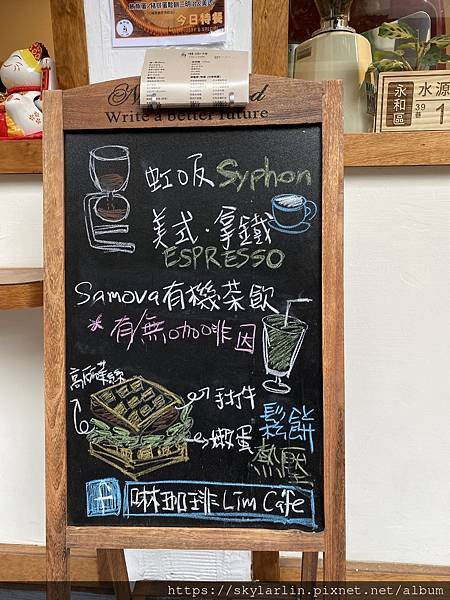 今日特餐
Write a better future
永和區
水源
39巷
1
虹吸 Syphon
美式・拿鐵
ESPRESSO
Samova有機茶飲
*有無咖啡因
高麗菜絲
手打牛
嫩蛋
鬆餅
熱壓
啉珈琲 Lim Cafe
https://skylarlin.pixnet.net/album